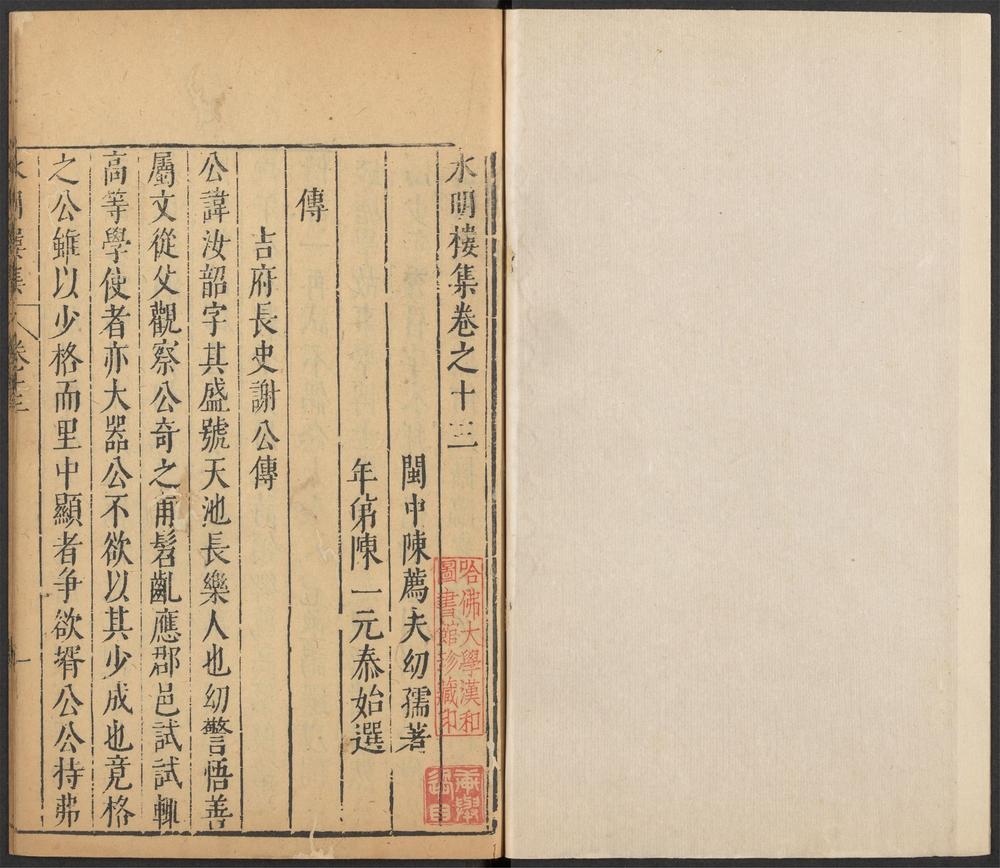 水明樓集卷之十三
閩中陳薦夫幼孺著
年弟陳一元泰始選
傳
吉府長史謝公傳
公諱汝韶字其盛號天池長樂人也幼警悟善
屬文從父觀察公奇之甫髫齔應郡邑試試輒
高等學使者亦大器公不欲以其少成也竟格
之公雖以少格而里中顯者争欲壻公公持弗
水明樓集 卷十三 一
哈佛大學漢和
圖書館珍藏印